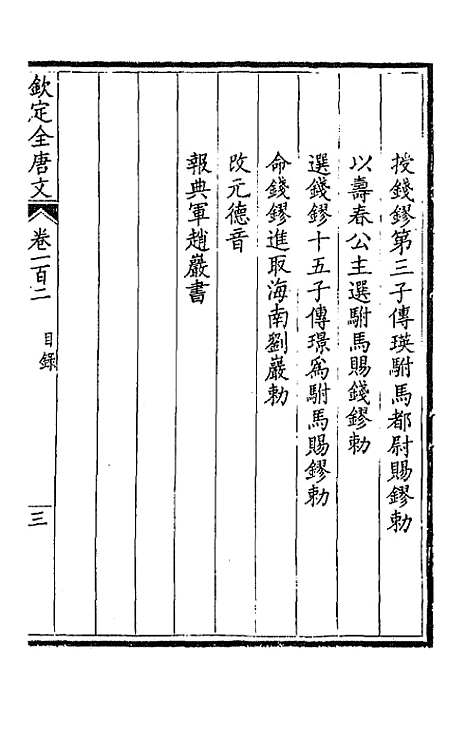 授錢鏐第三子傳瑛駙馬都尉賜鏐勅
以壽春公主選駙馬賜錢鏐勅
選錢鏐十五子傳璟爲駙馬賜鏐勅
命錢鏐進取海南劉巖勅
改元德音
報典軍趙巖書
欽定全唐文
卷一百二
目錄
三